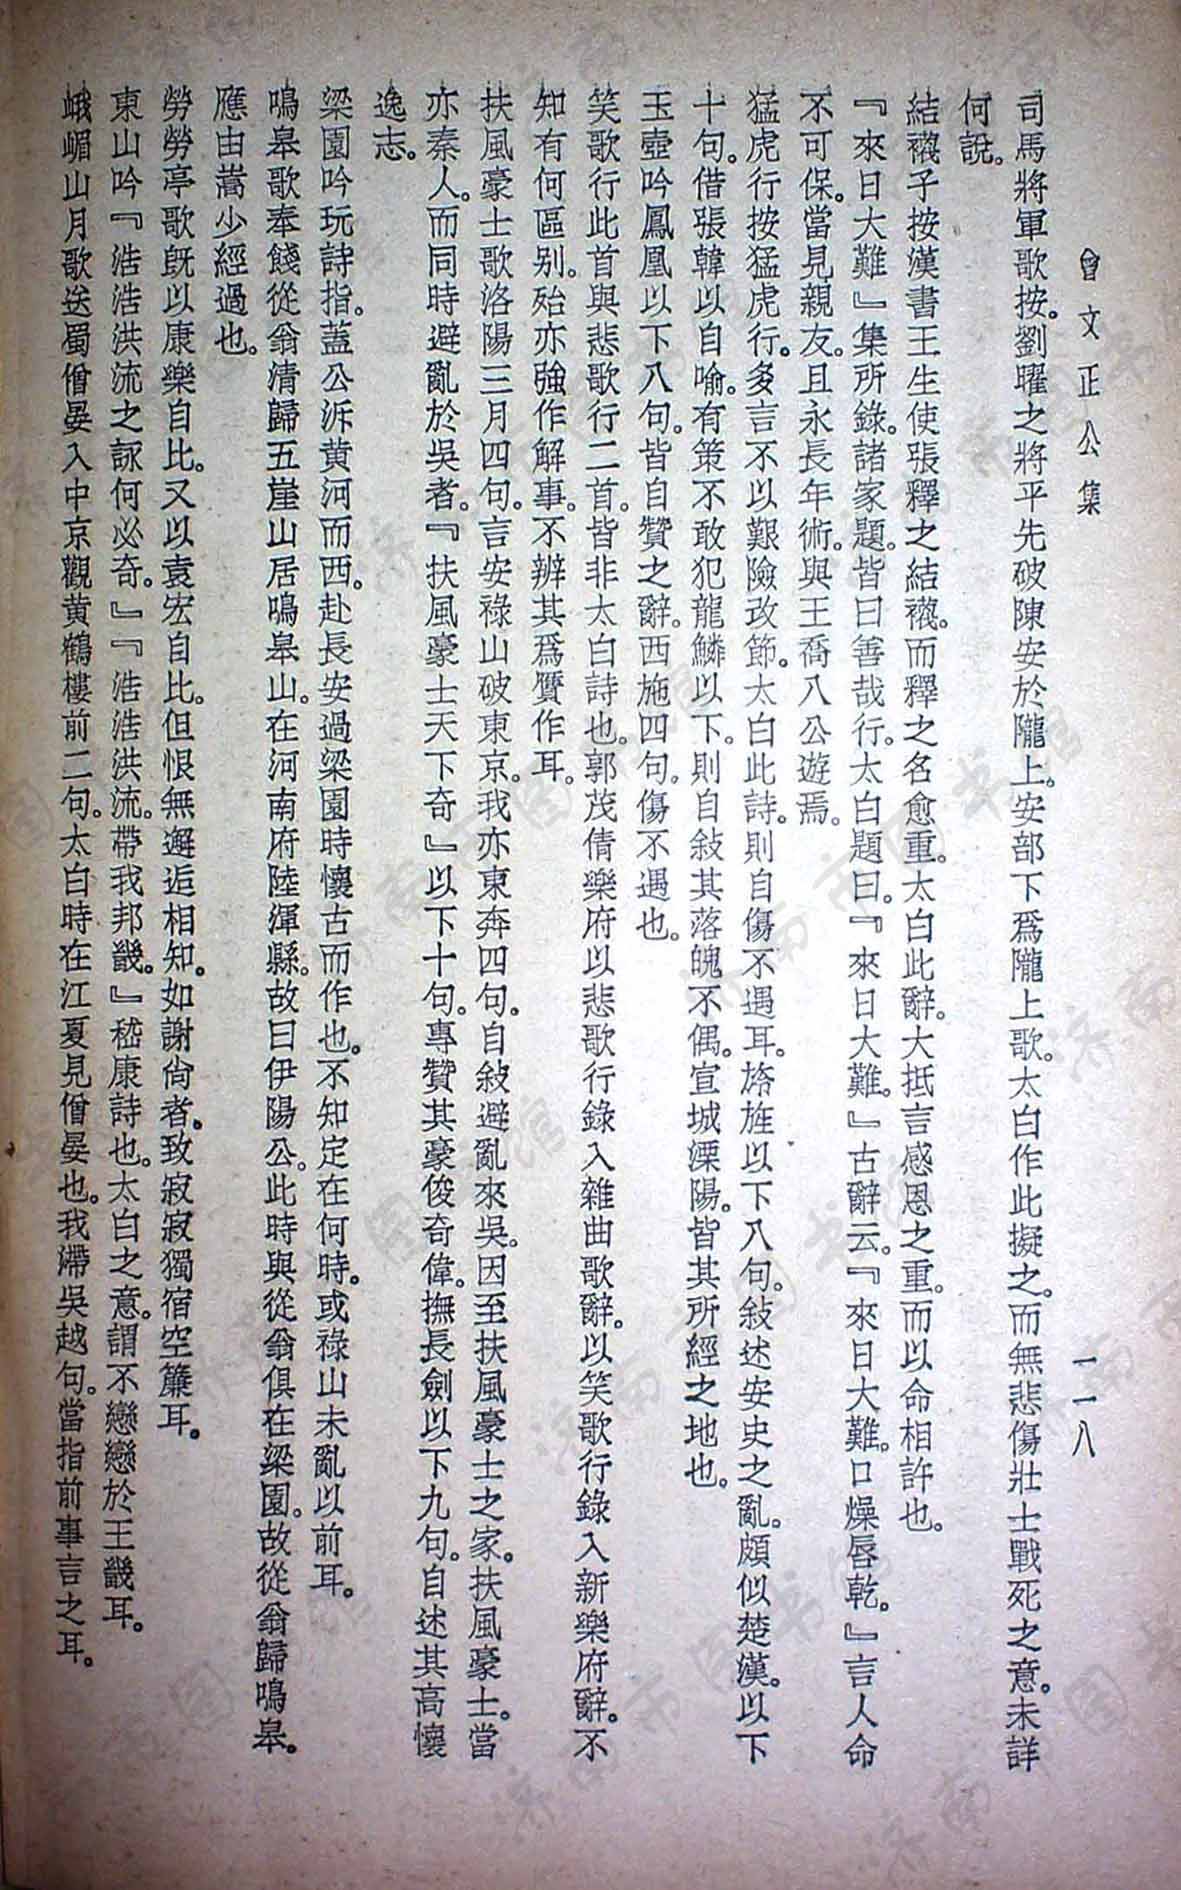 曾文正公集
一一八
司馬將軍歌按。劉曜之將平先破陳安於隴上。安部下爲隴上歌。太白作此擬之。而無悲傷壯士戰死之意。未詳
何說。
結襪子按漢書王生使張釋之結襪。而釋之名愈重。太白此辭。大抵言感恩之重。而以命相許也。
『來日大難』集所錄。諸家題。皆曰善哉行。太白題曰。『來日大難。』古辭云。『來日大難。口燥唇乾。』言人命
不可保。當見親友。且永長年術。與王喬八公遊焉。
猛虎行按猛虎行。多言不以艱險改節。太白此詩。則自傷不遇耳。旌旌以下八句。敍述安史之亂。頗似楚漢。以下
十句。借張韓以自喻。有策不敢犯龍鱗以下。則自敍其落魄不偶。宣城溧陽。皆其所經之地也。
玉壺吟鳳凰以下八句。皆自贊之辭。西施四句。傷不遇也。
笑歌行此首與悲歌行二首。皆非太白詩也。郭茂倩樂府以悲歌行錄入雜曲歌辭。以笑歌行錄入新樂府辭。不
知有何區别。殆亦強作解事。不辨其爲贗作耳。
扶風豪士歌洛陽三月四句。言安祿山破東京。我亦東奔四句。自敍避亂來吳。因至扶風豪士之家。扶風豪士。當
亦秦人。而同時避亂於吳者。『扶風豪士天下奇』以下十句。專贊其豪俊奇偉。撫長劍以下九句。自述其高懷
逸志。
梁園吟玩詩指。蓋公泝黄河而西。赴長安過梁園時懷古而作也。不知定在何時。或祿山未亂以前耳。
鳴皋歌奉餞從翁清歸五崖山居鳴皋山。在河南府陸渾縣。故曰伊陽公。此時與從翁俱在梁園。故從翁歸鳴皋。
應由嵩少經過也。
勞勞亭歌旣以康樂自比。又以袁宏自比。但恨無邂逅相知。如謝尙者。致寂寂獨宿空簾耳。
東山吟『浩浩洪流之詠何必奇。』『浩浩洪流。帶我邦畿。』嵇康詩也。太白之意。謂不戀戀於王畿耳。
峨嵋山月歌送蜀僧晏入中京觀黄鶴樓前二句。太白時在江夏見僧晏也。我滯吳越句。當指前事言之耳。